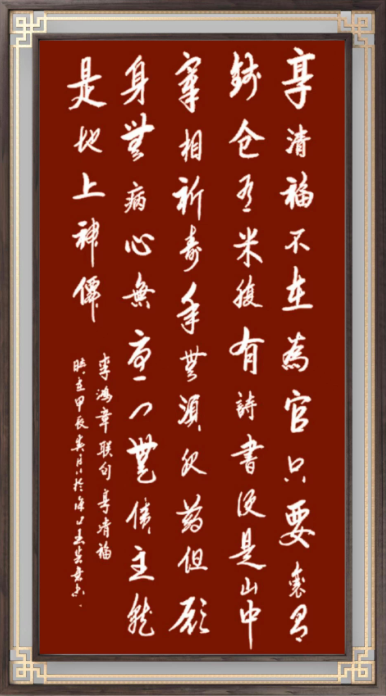 享清福不在為官只要囊有
錢仓有米腹有詩書便是山中
宰相祈壽年無須服药但願
身無病心無憂门無債主就
是地上神僊
李鴻章联句享清福
甲辰 月於海口